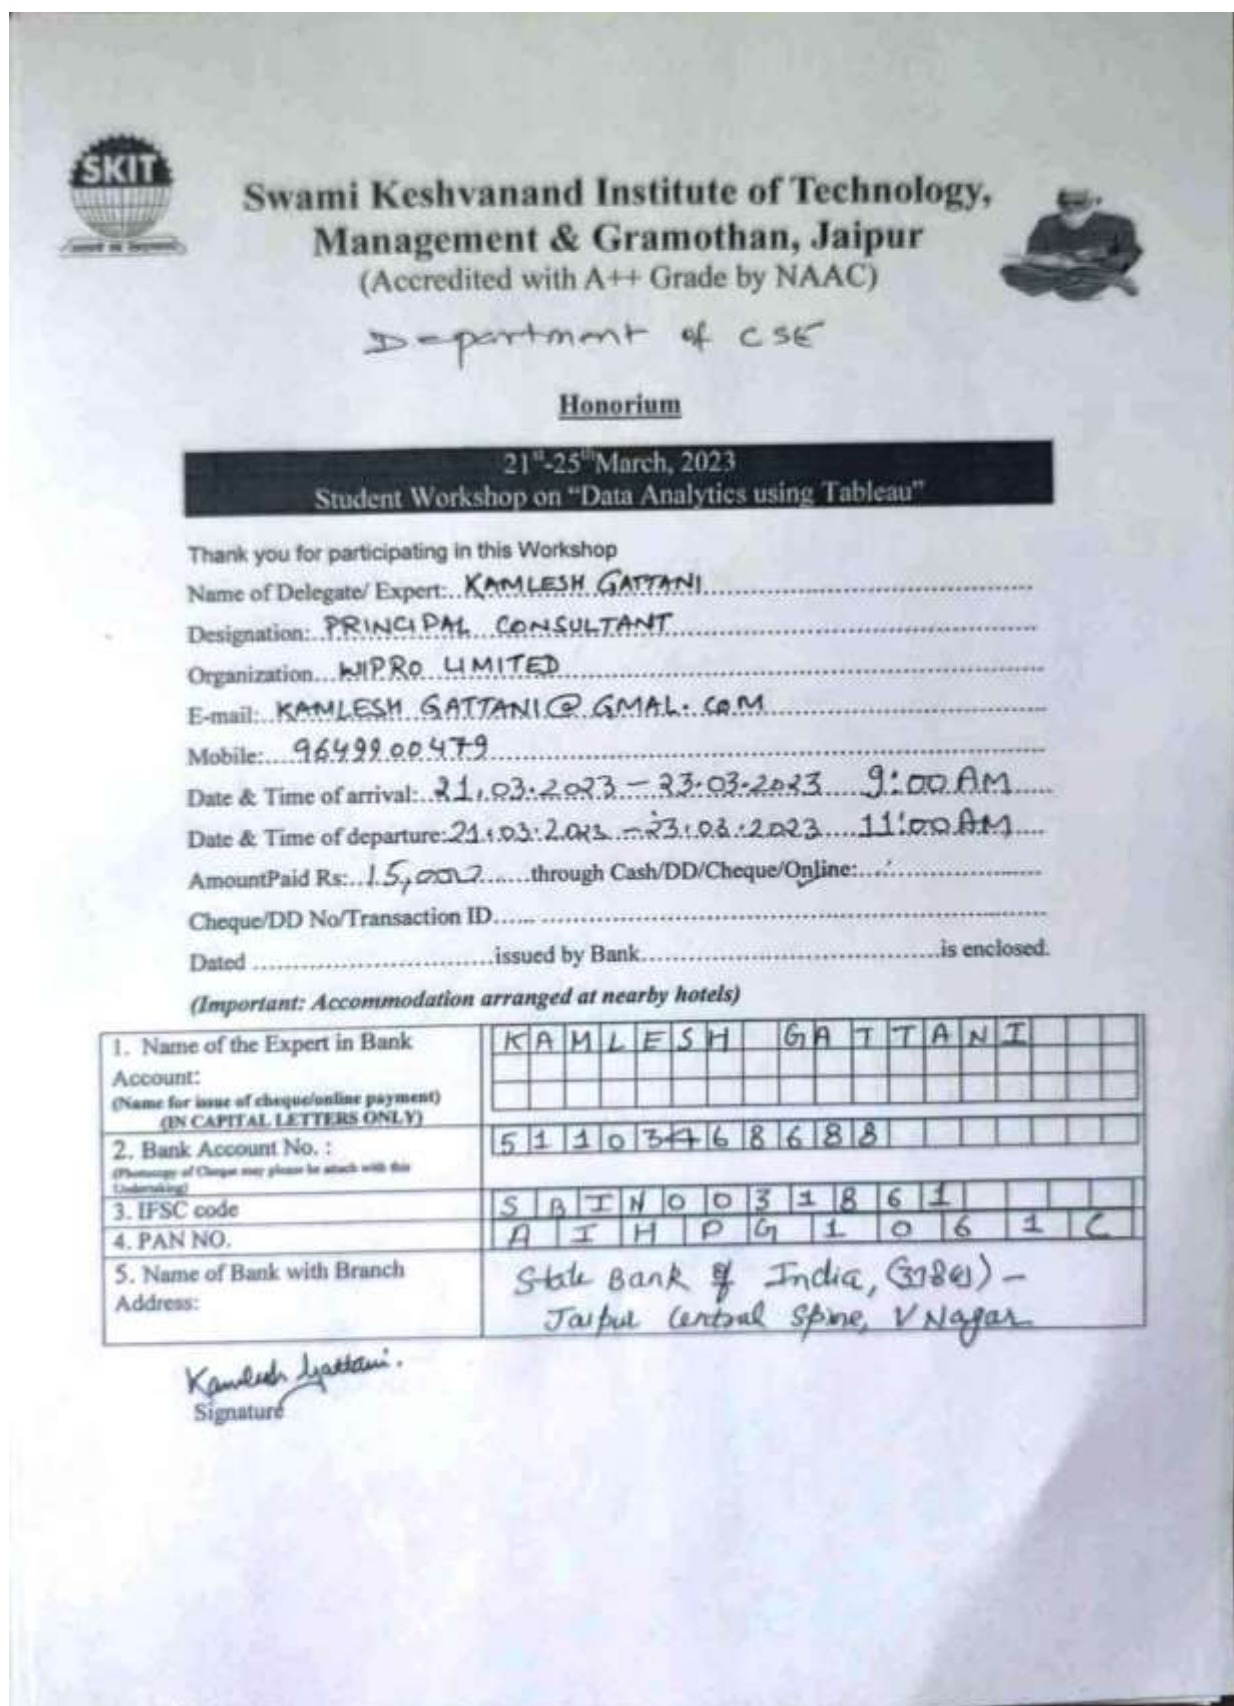 SKIT
Swami Keshvanand Institute of Technology,
Management & Gramothan, Jaipur
(Accredited with A++ Grade by NAAC)
Department of CSE
Honorium
21st-25th March, 2023
Student Workshop on "Data Analytics using Tableau"
Thank you for participating in this Workshop
Name of Delegate/ Expert:..KAMLESH GATTANI
Designation:..PRINCIPAL CONSULTANT
Organization...WIPRO LIMITED
E-mail:..KAMLESH GATTANI@GMAL.COM
Mobile:....9649900479
Date & Time of arrival:..21.03.2023 - 23.03.2023 9:00 AM
Date & Time of departure:21.03.2023 - 23.03.2023 11:00 AM
AmountPaid Rs:..15,000......through Cash/DD/Cheque/Online:
Cheque/DD No/Transaction ID
Dated ............................issued by Bank....................................is enclosed.
(Important: Accommodation arranged at nearby hotels)
1. Name of the Expert in Bank KAMLESH GATTANI
Account:
(Name for issue of cheque/online payment)
(IN CAPITAL LETTERS ONLY)
2. Bank Account No. : 5110 68688
(Photocopy of Cheque may please be attach with this
Undertaking)
3. IFSC code SBIN0031861
4. PAN NO. AIHPG1061C
5. Name of Bank with Branch State Bank of India, (31861) -
Address: Jaipur Central Spine, V Nagar
Kamlesh Gattani.
Signature